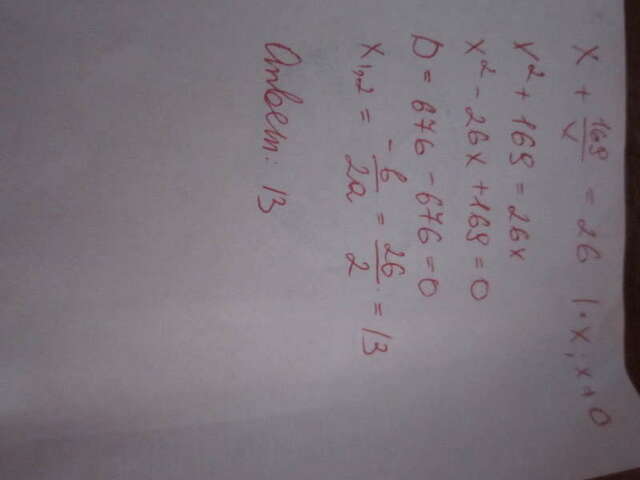 x + 169/x = 26 | · x ; x ≠ 0
x² + 169 = 26x
x² - 26x + 169 = 0
D = 676 - 676 = 0
x₁,₂ = -b/2a = 26/2 = 13
Ответ: 13